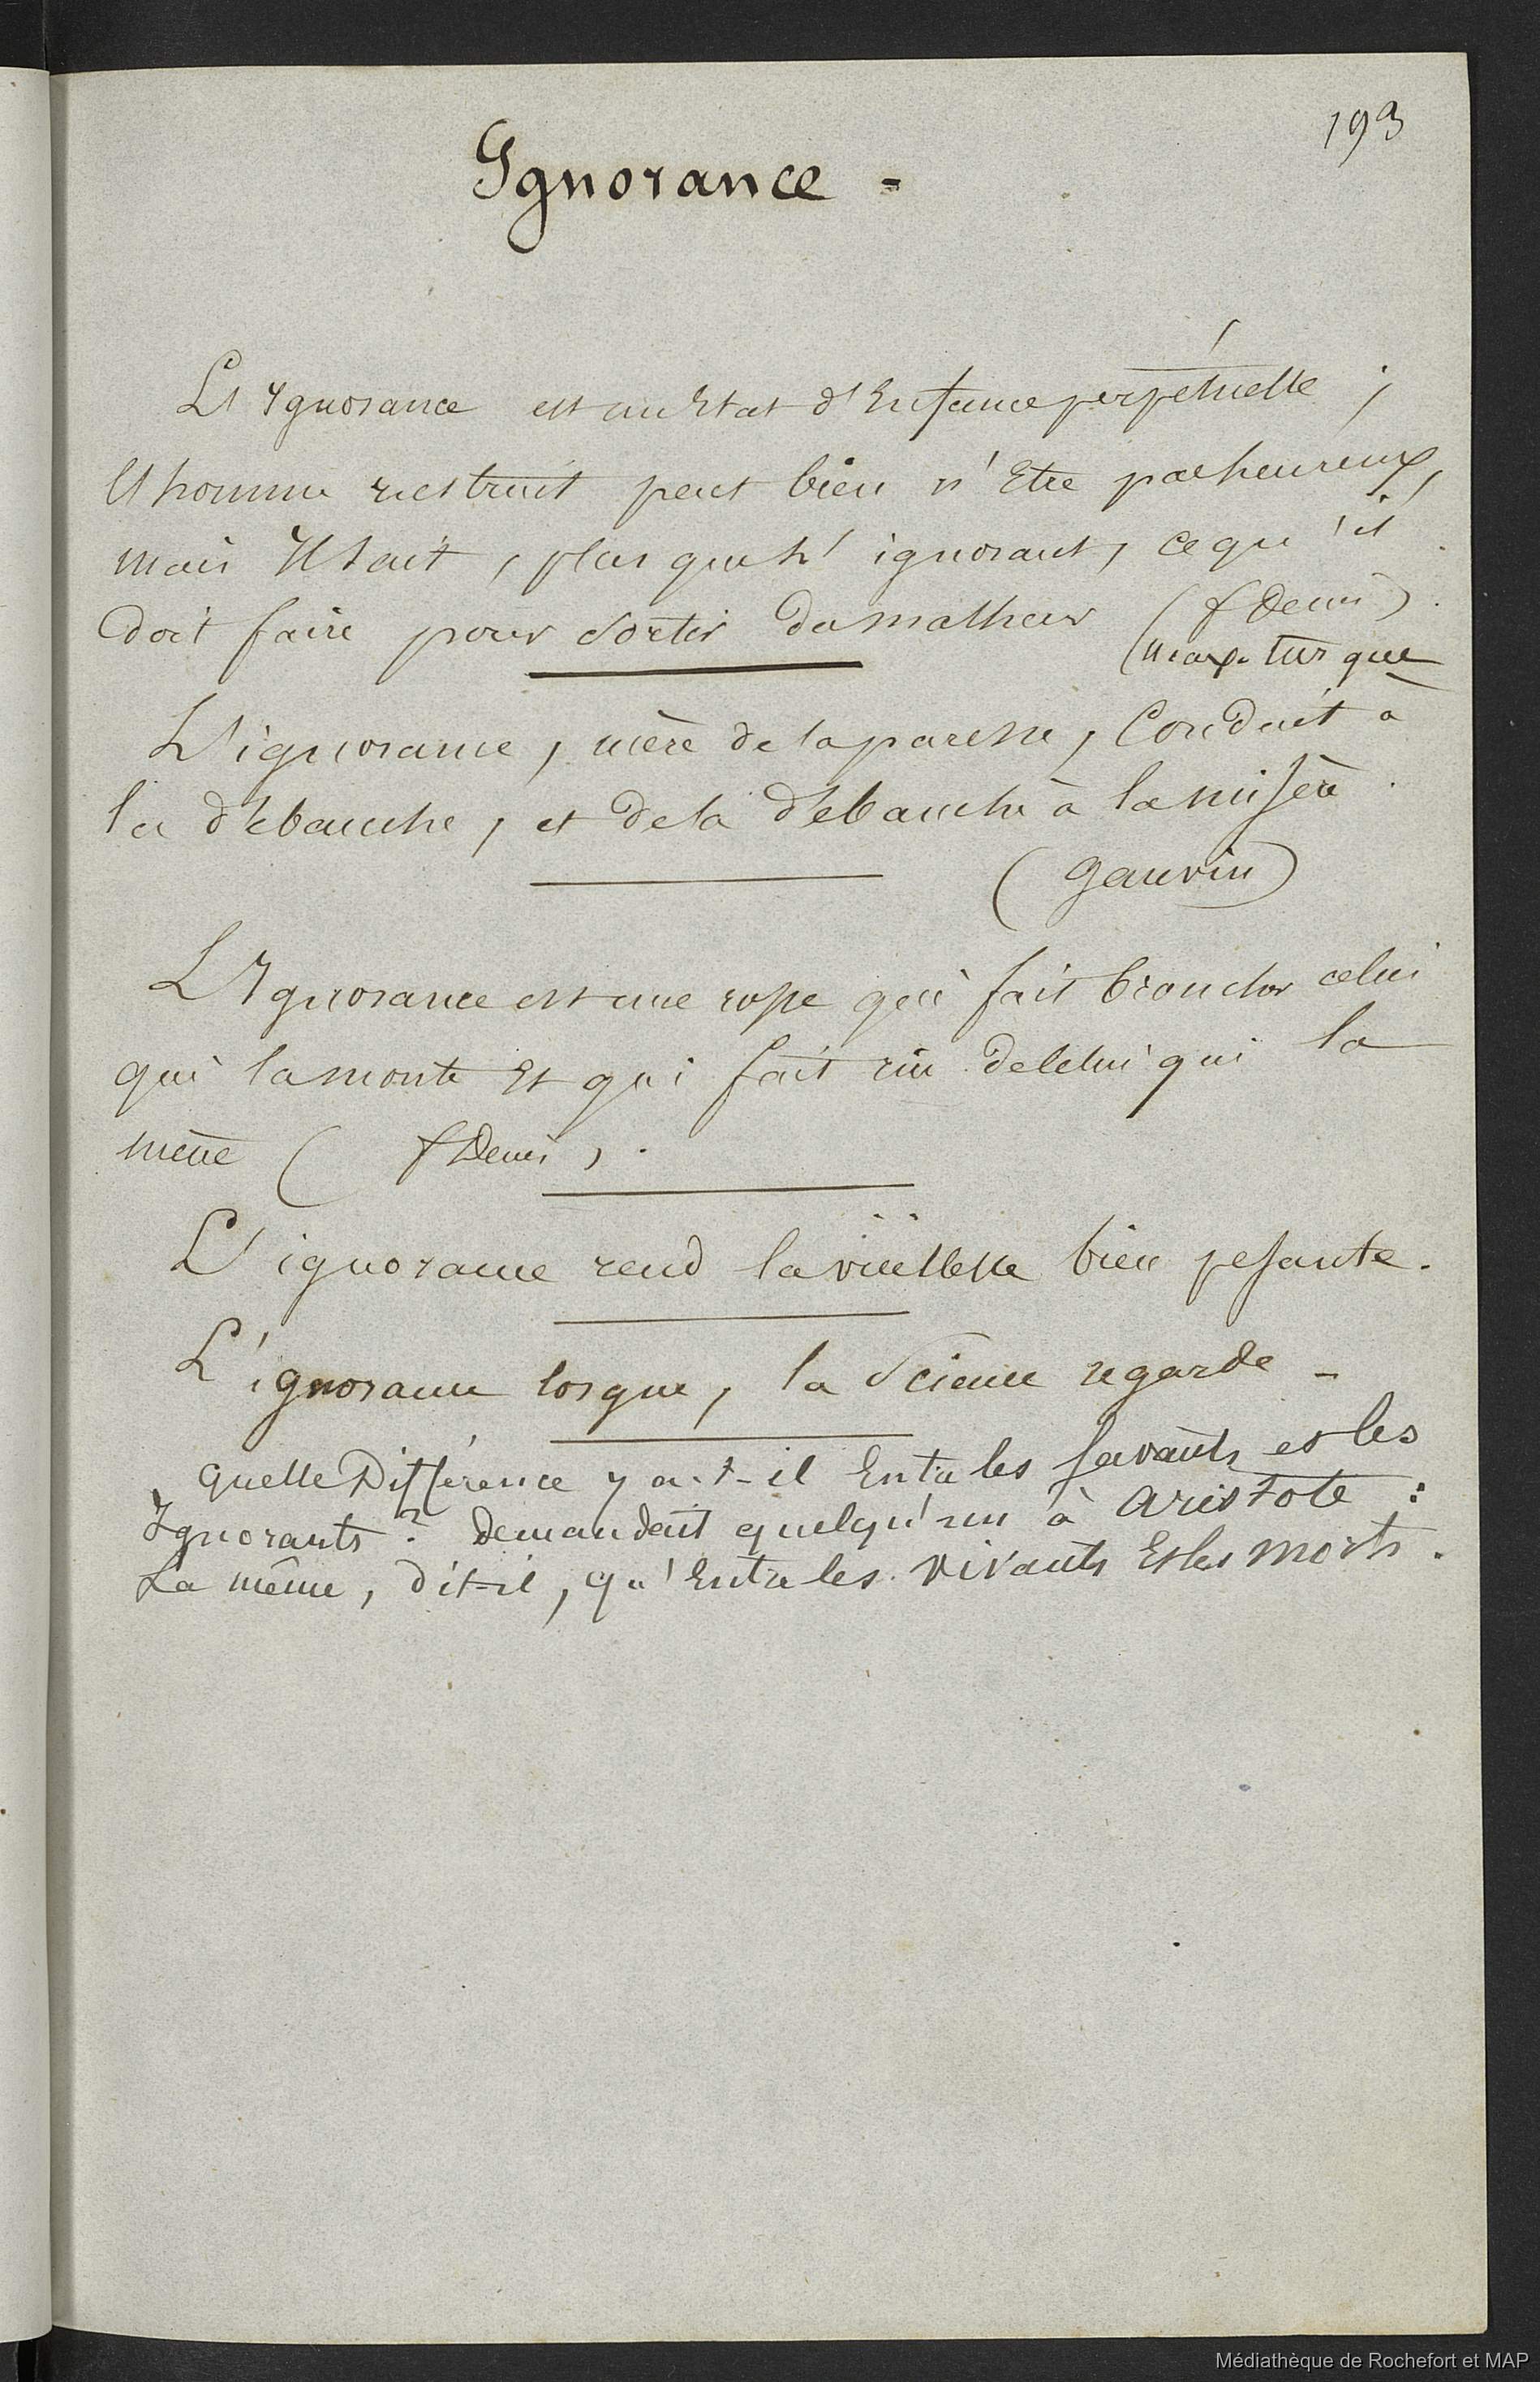 193
Ignorance =
L'Ignorance est un Etat d'Enfance perpétuelle ;
L'homme instruit peut bien n'Etre pas heureux,
mais Il sait, plus que l'ignorant, ce qu'il
doit faire pour sortir du malheur (f Denis).
(max. turque
L'ignorance, mère de la paresse, Conduit à
la débauche, et de la débauche à la misère.
(Gauvin)
L'Ignorance est une rosse qui fait broncher celui
qui la monte Et qui fait rire de celui qui la
mène (f Denis).
L'ignorance rend la vieillesse bien pesante.
L'ignorance lorgne, la Science regarde -
quelle Différence y a-t-il Entre les savants et les
Ignorants ? demandait quelqu'un à Aristote :
La même, dit-il, qu'Entre les vivants Et les morts.
Médiathèque de Rochefort et MAP